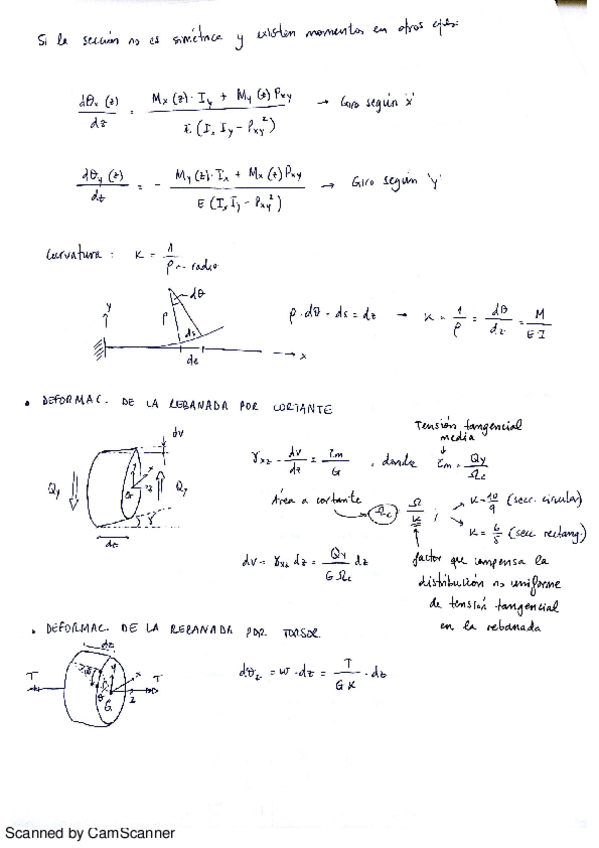 Si la sección no es simétrica y existen momentos en otros ejes:
dθx (z) / dz = Mx (z) · Iy + My (z) Pxy / E (Ix Iy - Pxy²) → Giro según 'x'
dθy (z) / dz = - My (z) · Ix + Mx (z) Pxy / E (Ix Iy - Pxy²) → Giro según 'y'
Curvatura : K = 1 / ρ ← radio
dθ
y
ρ
ds
dz
x
ρ · dθ = ds = dz → K = 1/ρ = dθ/dz = M/EI
• DEFORMAC. DE LA REBANADA POR CORTANTE
dv
Qy
G
Qy
γ
dz
Tensión tangencial
media
γxz = dv/dz = τm/G , donde τm = Qy/Ωc
Área a cortante
Ωc
Ω/K ;
K = 10/9 (secc. circular)
K = 6/5 (secc. rectang.)
dv = γxz dz = Qy / G Ωc dz
factor que compensa la
distribución no uniforme
de tensión tangencial
en la rebanada
• DEFORMAC. DE LA REBANADA POR TORSOR
dz
T
y
x
T
G
z
dθz = w · dz = T / G K · dz
Scanned by CamScanner